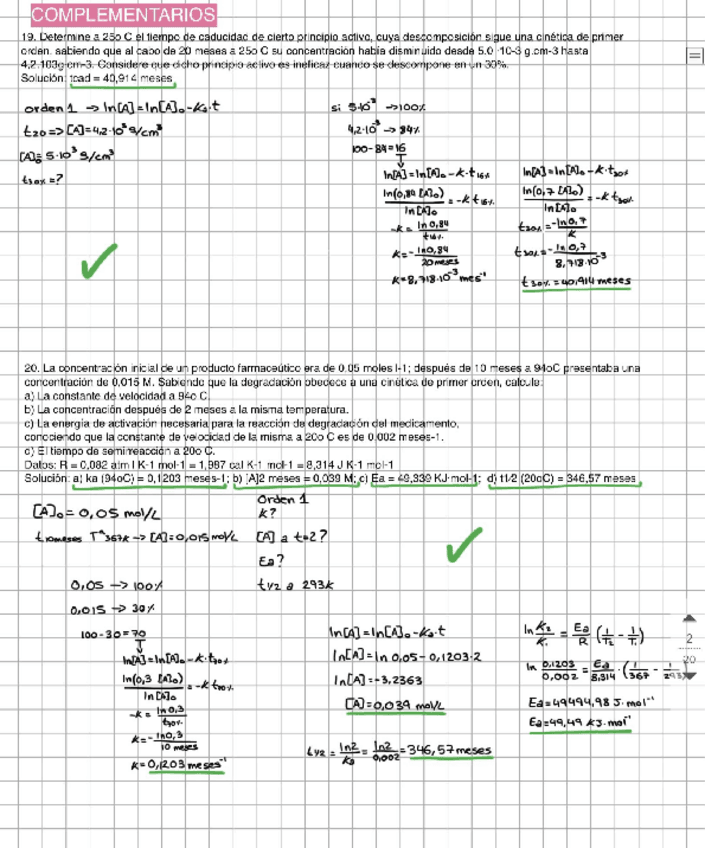 COMPLEMENTARIOS
19. Determine a 25o C el tiempo de caducidad de cierto principio activo, cuya descomposición sigue una cinética de primer
orden, sabiendo que al cabo de 20 meses a 25o C su concentración había disminuido desde 5.0 ·10-3 g.cm-3 hasta
4,2.103g·cm-3. Considere que dicho principio activo es ineficaz cuando se descompone en un 30%.
Solución: tcad = 40,914 meses
orden 1 → ln[A]=ln[A]₀-k₀·t
t20 => [A]=4,2·10³ g/cm³
[A]₀= 5·10³ g/cm³
t30% =?
si 5·10³ →100%
4,2·10⁻³ → 84%
100-84=16
ln[A]=ln[A]₀-k·t16%
ln(0,84 [A]₀) / ln[A]₀ = -k t16%
-k = ln 0,84 / t16%
k = - ln0,84 / 20 meses
k=8,718·10⁻³ mes⁻¹
ln[A]=ln[A]₀-k·t30%
ln(0,7 [A]₀) / ln[A]₀ = -k t30%
t30% = -ln 0,7 / k
t30% = - ln 0,7 / 8,718·10⁻³
t30% = 40,914 meses
20. La concentración inicial de un producto farmaceútico era de 0.05 moles l-1; después de 10 meses a 94oC presentaba una
concentración de 0,015 M. Sabiendo que la degradación obedece a una cinética de primer orden, calcule:
a) La constante de velocidad a 94o C.
b) La concentración después de 2 meses a la misma temperatura.
c) La energía de activación necesaria para la reacción de degradación del medicamento,
conociendo que la constante de velocidad de la misma a 20o C es de 0,002 meses-1.
d) El tiempo de semirreacción a 20o C.
Datos: R = 0,082 atm l K-1 mol-1 = 1,987 cal K-1 mol-1 = 8,314 J K-1 mol-1
Solución: a) ka (94oC) = 0,1203 meses-1; b) [A]2 meses = 0,039 M; c) Ea = 49,339 KJ·mol-1; d) t1/2 (20oC) = 346,57 meses
[A]₀= 0,05 mol/L
t10meses Tª367k → [A]=0,015 mol/L
Orden 1
k?
[A] a t=2?
Ea?
t1/2 a 293k
0,05 → 100%
0,015 → 30%
100-30=70
ln[A]=ln[A]₀-k·t70%
ln(0,3 [A]₀) / ln[A]₀ = -k t70%
-k = ln 0,3 / t70%
k = - ln0,3 / 10 meses
k= 0,1203 meses⁻¹
ln[A]=ln[A]₀-k₀·t
ln[A]=ln 0,05-0,1203·2
ln[A]=-3,2363
[A]=0,039 mol/L
t1/2 = ln2 / k₀ = ln2 / 0,002 = 346,57 meses
ln K₂/K₁ = Ea/R (1/T₂ - 1/T₁)
ln 0,1203/0,002 = Ea/8,314 · (1/367 - 1/293)
Ea=49494,98 J·mol⁻¹
Ea=49,49 kJ·mol⁻¹
2
20